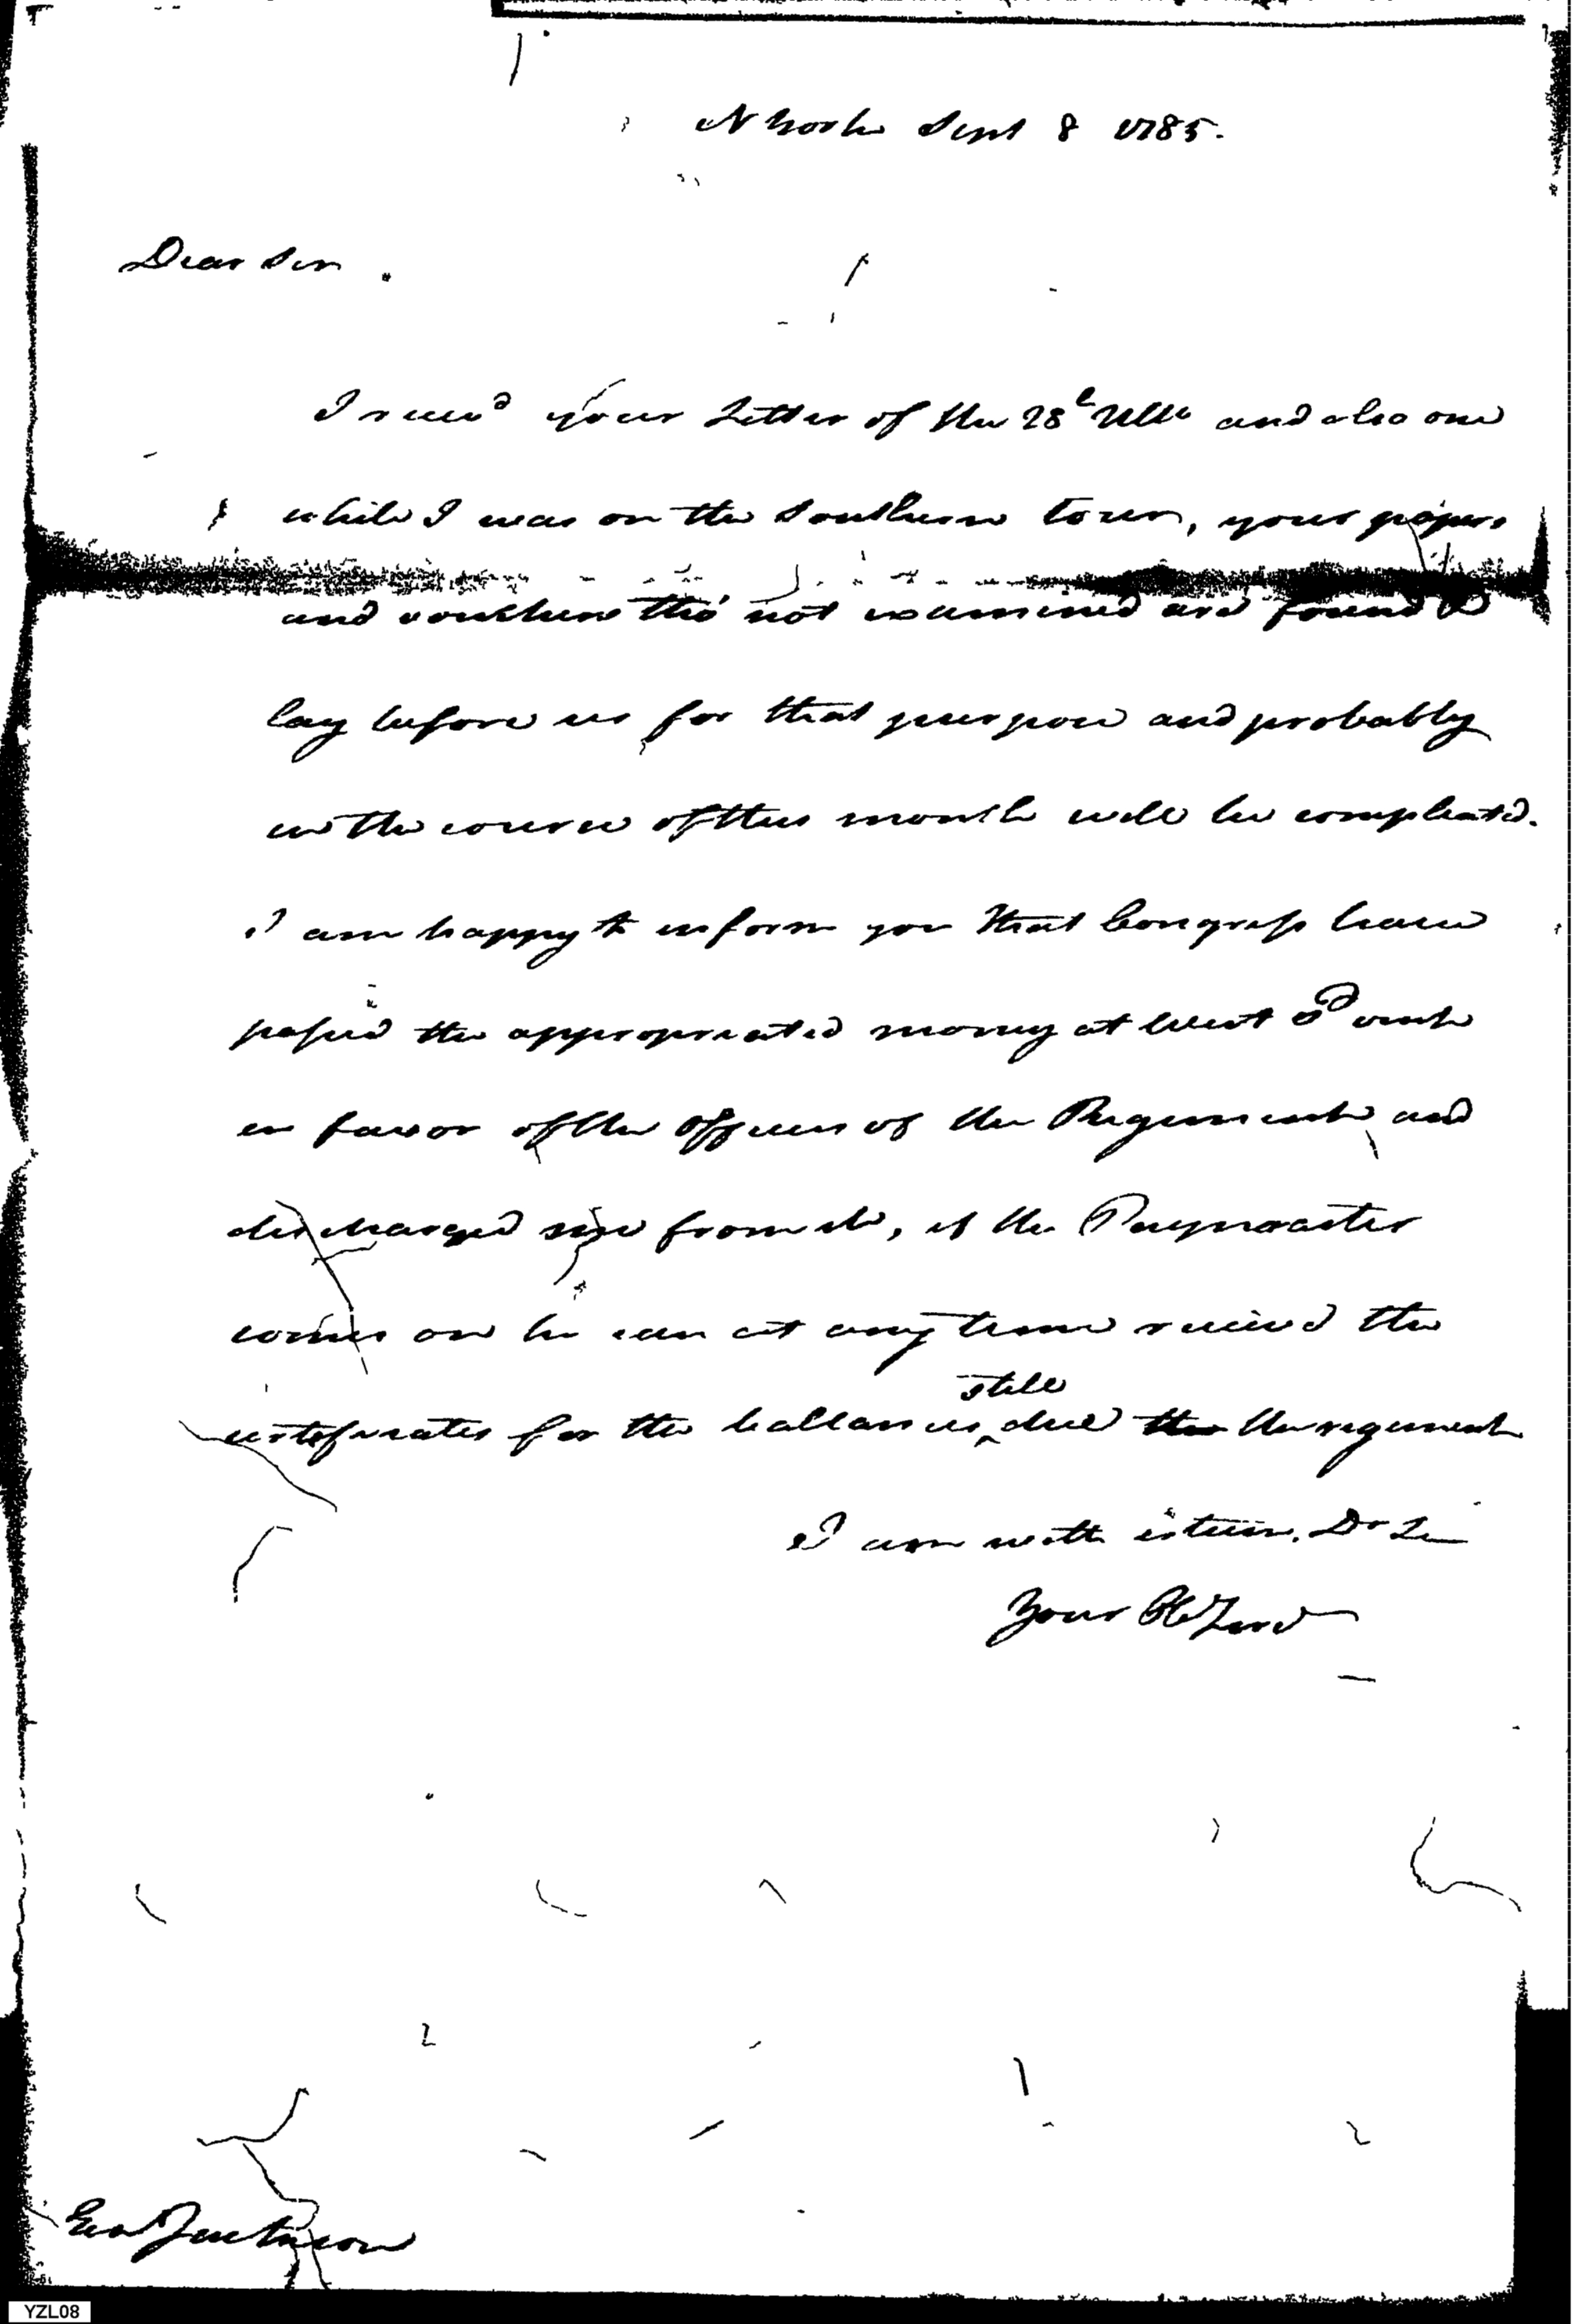 N York Sept 8 1785.
Dear Sir.
I recd your Letter of the 28t Ulto and also one
while I was on the Southern tour, your papers
and vouchers tho' not examined are found &
lay before us for that purpose and probably
in the course of this month will be compleated.
I am happy to inform you that Congress have
passed the appropriated money at West
in favor of the Officers of the Regiment and
discharged from it, if the Paymaster
comes on he can at any time recieve the
certificates for the ballances still due the the regiment
I am with esteem. Dr Sir
Your Ob Serv
Gen Jackson
YZL08